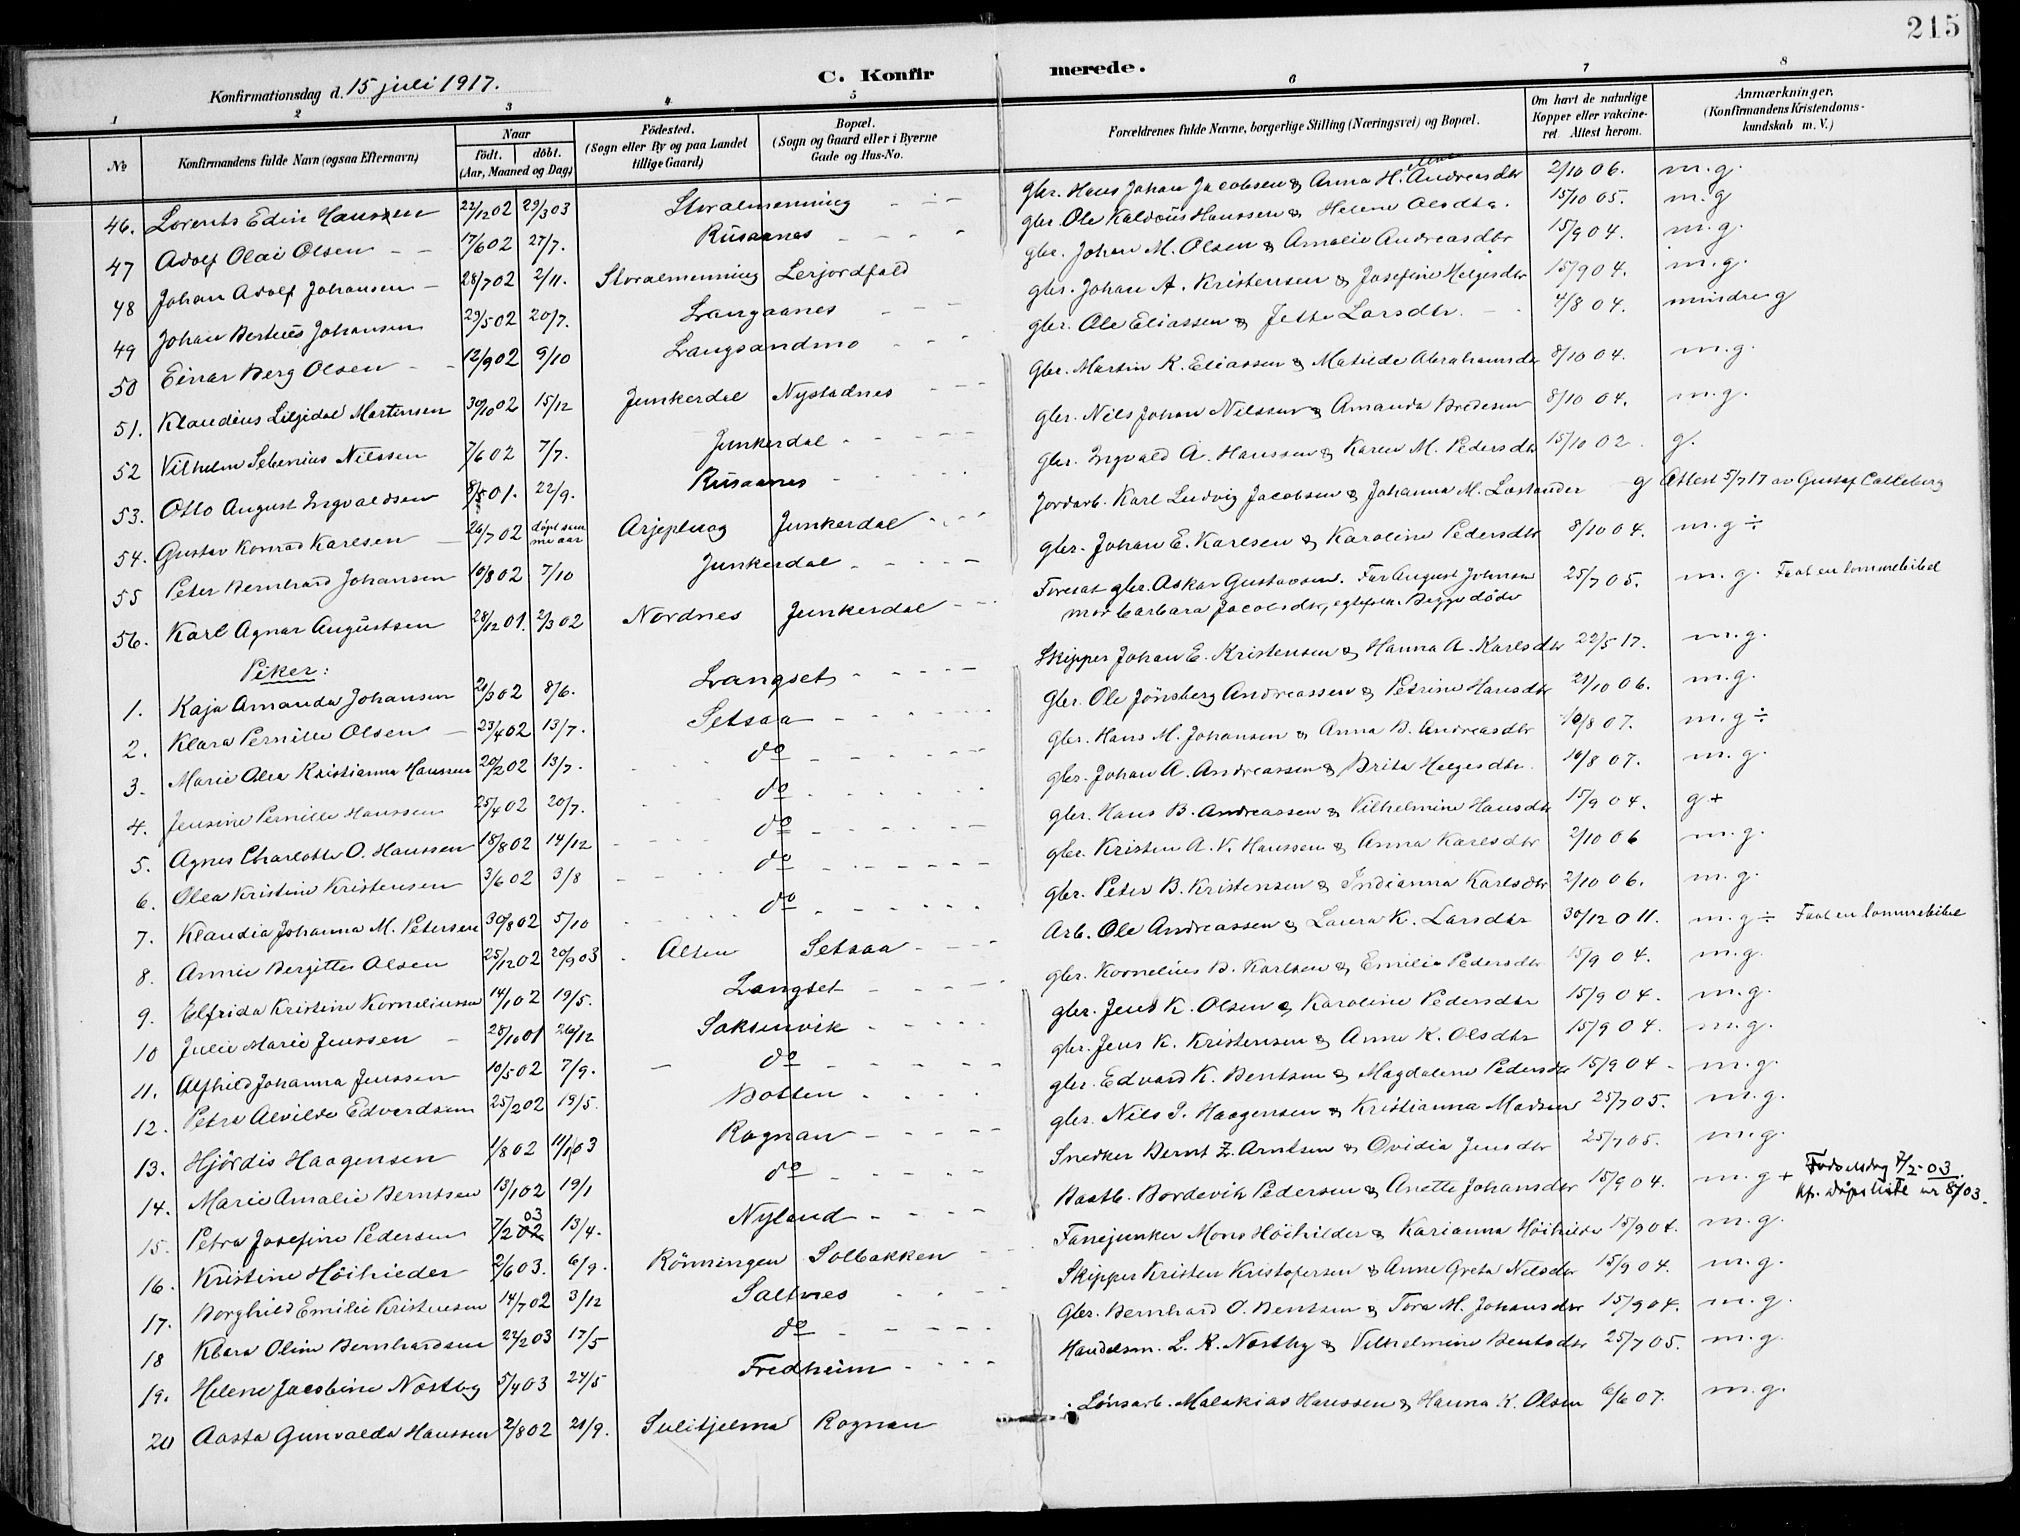 215
C. Konfirmerede.
Konfirmationsdag d. 15 juli 1917.
1 2 3 4 5 6 7 8
№ Konfirmandens fulde Navn (ogsaa Efternavn) Naar født. døbt. (Aar, Maaned og Dag) Födested. (Sogn eller By og paa Landet tillige Gaard) Bopæl. (Sogn og Gaard eller i Byerne Gade og Hus-No. Forældrenes fulde Navne, borgerlige Stilling (Næringsvei) og Bopæl. Om havt de naturlige Kopper eller vakcineret Attest herom. Anmærkninger, (Konfirmandens Kristendomskundskab m. V.)
46. Lorents Edin Hanssen 22/12 02 29/3 03 Storalmenning gbr. Hans Johan Jacobsen & Anna H. Andreasdtr 2/10 06. m.g.
47 Adolf Olai Olsen 17/6 02 27/7. Rusaanes gbr. Ole Kaldöus Hanssen & Helene Olsdtr. 15/10 05. m.g
48 Johan Adolf Johansen 28/7 02 2/11. Storalmenning Lerjordfald gbr. Johan M. Olsen & Amalie Andreasdtr 15/9 04. m.g.
49 Johan Berteus Johansen 29/5 02 20/7. Langaanes gbr. Johan A. Kristensen & Josefine Helgesdtr 15/9 04. m.g.
50 Einar Berg Olsen 12/9 02 9/10 Langsandmo gbr. Ole Eliassen & Jette Larsdtr. 4/8 04. mindre g
51. Klaudius Liljedal Martinsen 30/10 02 15/12 Junkerdal Nystadnes Gbr. Martin K. Eliassen & Matilde Abrahamsdtr 8/10 04. m.g.
52 Vilhelm Sebenius Nilssen 7/6 02 7/7. Junkerdal gbr. Nils Johan Nilssen & Amanda Bredesen 8/10 04. m.g.
53. Otto August Ingvaldsen 8/5 01. 22/9. Rusaanes gbr. Ingvald A. Hanssen & Karen M. Pedersdtr 15/10 02. g.
54. Gustav Konrad Karlsen 26/7 02 döpt samme aar Arjepluog Junkerdal Jordarb. Karl Ludvig Jacobsen & Johanna M. Lastander g Attest 5/7 17 av Gustaf Calleberg
55 Peter Bernhard Johansen 10/8 02 7/10 Junkerdal gbr. Johan E. Karlsen & Karoline Pedersdtr 8/10 04. m.g ÷
56. Karl Agnar Augustsen 28/12 01. 2/3 02 Nordnes Junkerdal Foresat gbr. Oskar Gustavsen. Far August Johnsen mor Barbara Jacobsdtr, egtefolk. Begge döde 25/7 05. m.g. Faat en lommebibel
Piker:
1. Kaja Amanda Johansen 21/3 02 8/6. Langset Skipper Johan E. Kristensen & Hanna A. Karlsdtr 22/5 17. m.g.
2. Klara Pernille Olsen 23/4 02 13/7. Setsaa Gbr. Ole Jönsberg Andreassen & Petrine Hansdtr 21/10 06. m.g.
3. Marie Olea Kristianna Hanssen 20/2 02 13/7. do gbr. Hans M. Johansen & Anna B. Andreasdtr 10/8 07. m.g ÷
4. Jensine Pernille Hanssen 25/4 02 20/7. do gbr. Johan A. Andreassen & Brita Helgesdtr. 10/8 07. m.g.
5. Agnes Charlotte O. Hanssen 18/8 02 14/12 do gbr. Hans B. Andreassen & Vilhelmine Hansdtr 15/9 04. g+
6. Olea Kristine Kristensen 3/6 02 3/8 do gbr. Kristen A. V. Hanssen & Anna Karlsdtr 2/10 06 m.g.
7. Klaudia Johanna M. Petersen 30/8 02 5/10 do gbr. Peter B. Kristensen & Indianna Karlsdtr 2/10 06. m.g.
8. Annie Bergitte Olsen 25/12 02 20/9 03 Alten Setsaa Arb. Ole Andreassen & Laura K. Larsdtr 30/12 011. m.g ÷ Faat en lommebibel
9. Elfrida Kristine Korneliussen 14/1 02 19/5. Langset gbr. Kornelius B. Karlsen & Emilie Pedersdtr 15/9 04. m.g.
10 Julie Marie Jenssen 28/10 01 26/12 Saksenvik gbr. Jens K. Olsen & Karoline Pedersdtr 15/9 04. m.g.
11. Alfhild Johanna Jenssen 10/5 02 7/9. do gbr. Jens K. Kristensen & Anne K. Olsdtr 15/9 04. m.g.
12. Petra Alvilde Edvardsen 25/2 02 19/5. Botten gbr. Edvard K. Bentsen & Magdalene Pedersdtr 15/9 04. m.g.
13. Hjördis Haagensen 1/8 02 11/1 03 Rognan gbr. Nils J. Haagensen & Kristianna Madsen 25/7 05. m.g.
14. Marie Amalie Berntsen 13/1 02 19/1 do Snedker Bernt Z. Arntsen & Ovidia Jensdtr 25/7 05. m.g.
15. Petra Josefine Pedersen 7/2 02 03 13/4. Nyland Baatb. Bordevik Pedersen & Anette Johansdtr 15/9 04. m.g + Fødselsdag 7/2-03. kfr. dåpsliste nr 8/03.
16. Kristine Höihilder 2/6 03. 6/9. Rönningen Solbakken Fanejunker Mons Höihilder & Karianna Höihilder 15/9 04. m.g.
17. Borghild Emilie Kristensen 14/7 02 3/12 Saltnes Skipper Kristen Kristofersen & Anne Greta Nilsdtr 15/9 04. m.g.
18 Klara Oline Bernhardsen 22/2 03 17/5 do Gbr. Bernhard O. Bentsen & Tora M. Johansdtr 15/9 04. m.g.
19. Helene Jacobine Næstby 5/4 03 24/5 Fredheim Handelsm. L. K. Næstby & Vilhelmine Bentsdtr 25/7 05. m.g.
20 Aasta Gunvalda Hanssen 2/8 02 21/9. Sulitjelma Rognan Lönsarb. Malakias Hanssen & Hanna K. Olsen 6/6 07. m.g.